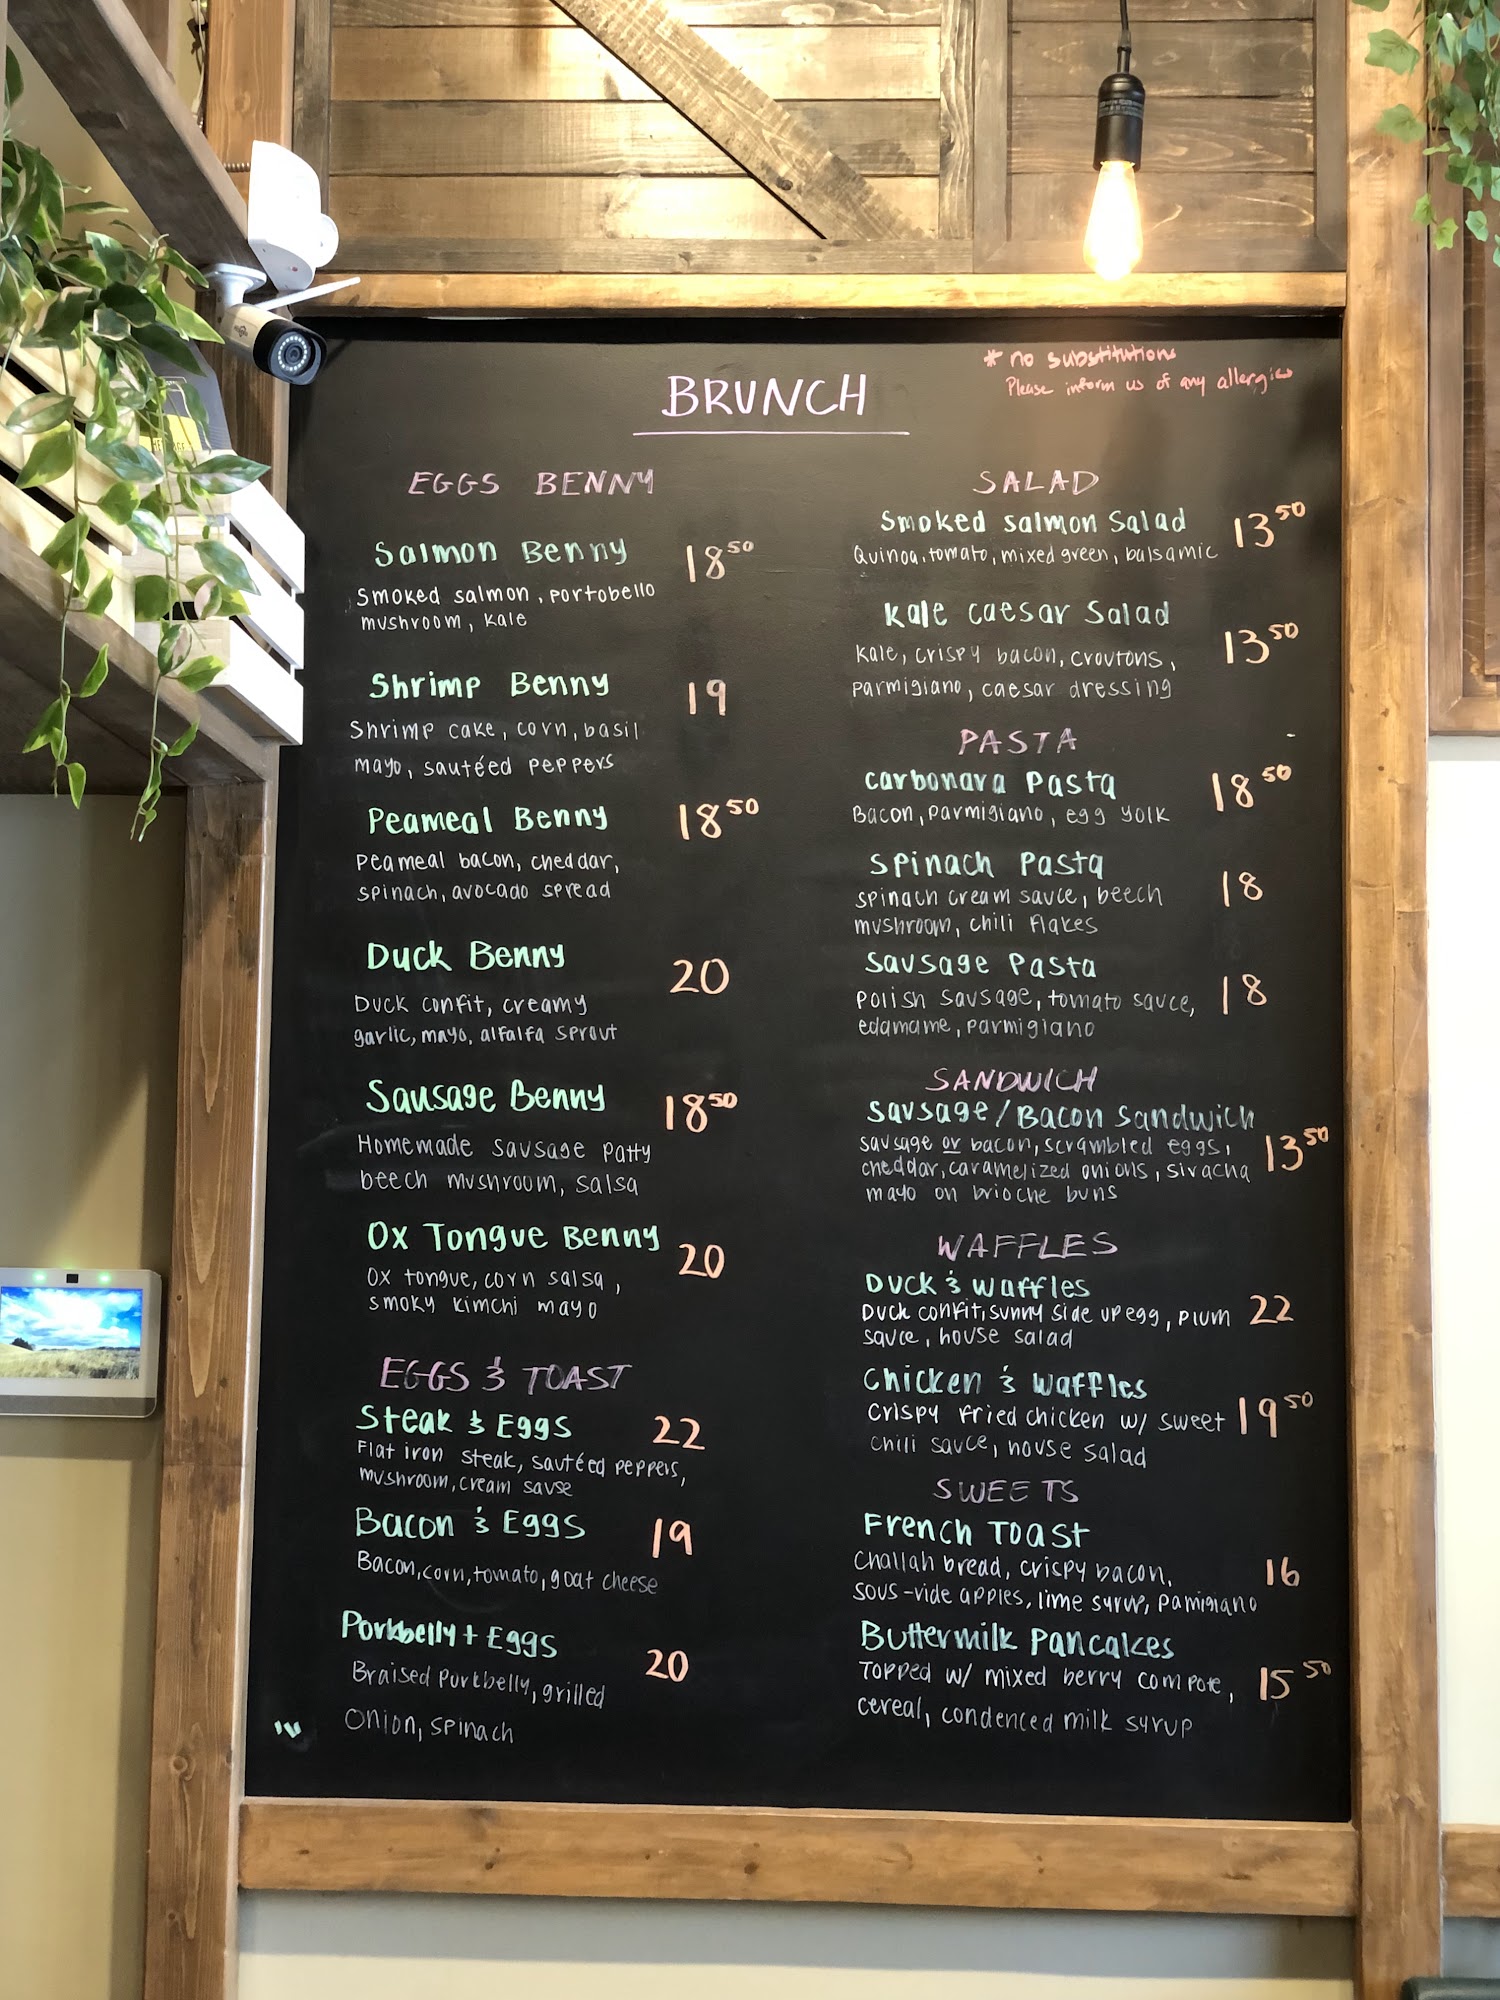 BRUNCH
* no substitutions
Please inform us of any allergies
EGGS BENNY
Salmon Benny 18 50
Smoked salmon, portobello
mushroom, kale
Shrimp Benny 19
Shrimp cake, corn, basil
mayo, sautéed peppers
Peameal Benny 18 50
Peameal bacon, cheddar,
spinach, avocado spread
Duck Benny 20
Duck confit, creamy
garlic, mayo, alfalfa sprout
Sausage Benny 18 50
Homemade sausage patty
beech mushroom, salsa
Ox Tongue Benny 20
Ox tongue, corn salsa,
smoky kimchi mayo
EGGS & TOAST
Steak & Eggs 22
Flat iron steak, sautéed peppers,
mushroom, cream sause
Bacon & Eggs 19
Bacon, corn, tomato, goat cheese
Porkbelly + Eggs 20
Braised porkbelly, grilled
onion, spinach
SALAD
Smoked salmon Salad 13 50
Quinoa, tomato, mixed green, balsamic
Kale Caesar Salad 13 50
Kale, crispy bacon, croutons,
parmigiano, caesar dressing
PASTA
Carbonara Pasta 18 50
Bacon, parmigiano, egg yolk
Spinach Pasta 18
spinach cream sauce, beech
mushroom, chili flakes
Sausage Pasta 18
polish sausage, tomato sauce,
edamame, parmigiano
SANDWICH
Sausage/Bacon Sandwich 13 50
sausage or bacon, scrambled eggs,
cheddar, caramelized onions, siracha
mayo on brioche buns
WAFFLES
Duck & Waffles 22
Duck confit, sunny side up egg, plum
sauce, house salad
Chicken & Waffles 19 50
Crispy fried chicken w/ sweet
chili sauce, house salad
SWEETS
French Toast 16
Challah bread, crispy bacon,
sous-vide apples, lime syrup, pamigiano
Buttermilk Pancakes 15 50
Topped w/ mixed berry compote,
cereal, condenced milk syrup